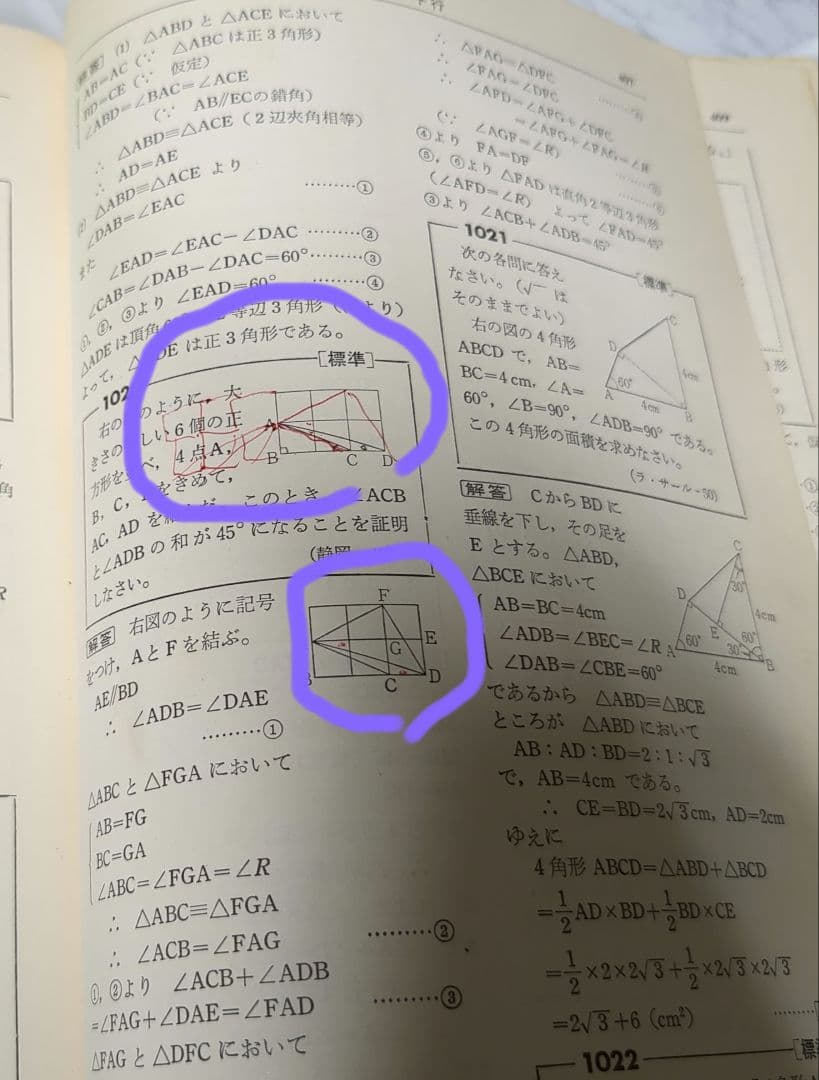 解答 (1) △ABD と △ACE において
AB=AC (∵ △ABC は正3角形)
BD=CE (∵ 仮定)
∠ABD=∠BAC=∠ACE
(∵ AB∥ECの錯角)
∴ △ABD≡△ACE (2辺夾角相等)
∴ AD=AE
(2) △ABD≡△ACE より
∠DAB=∠EAC ………①
また
∠EAD=∠EAC−∠DAC ………②
∠CAB=∠DAB−∠DAC=60°………③
①, ②, ③より ∠EAD=60° ………④
△ADE は頂角 等辺3角形 より)
よって, △ DE は正3角形である。
102
[標準]
右の のように, 大
きさの しい6個の正
方形を べ, 4点A,
B, C, をきめて,
AC, AD を このとき, ∠ACB
と∠ADB の和が 45° になることを証明
しなさい。
(静岡
A
B
C
D
解答 右図のように記号
をつけ, AとFを結ぶ。
AE∥BD
∴ ∠ADB=∠DAE
………①
F
G
E
C
D
△ABC と △FGA において
AB=FG
BC=GA
∠ABC=∠FGA=∠R
∴ △ABC≡△FGA
∴ ∠ACB=∠FAG ………②
①, ②より ∠ACB+∠ADB
=∠FAG+∠DAE=∠FAD ………③
△FAG と △DFC において
∴ △FAG≡△DFC
∴ ∠FAG=∠DFC
∴ ∠AFD=∠AFG+∠DFC
=∠AFG+∠FAG=∠R
(∵ ∠AGF=∠R)
④より FA=DF
⑤, ⑥より △FAD は直角2等辺3角形
(∠AFD=∠R) よって ∠FAD=45°
③より ∠ACB+∠ADB=45°
1021
[標準]
次の各問に答え
なさい。(√ は
そのままでよい)
右の図の4角形
ABCD で, AB=
BC=4cm, ∠A=
60°, ∠B=90°, ∠ADB=90° である。
この4角形の面積を求めなさい。
(ラ・サール・50)
C
D
4cm
60°
A
4cm
B
解答 CからBDに
垂線を下し, その足を
E とする。△ABD,
△BCE において
AB=BC=4cm
∠ADB=∠BEC=∠R
∠DAB=∠CBE=60°
であるから △ABD≡△BCE
ところが △ABD において
AB:AD:BD=2:1:√3
で, AB=4cm である。
∴ CE=BD=2√3cm, AD=2cm
ゆえに
4角形 ABCD=△ABD+△BCD
=1/2AD×BD+1/2BD×CE
=1/2×2×2√3+1/2×2√3×2√3
=2√3+6 (cm²)
C
30°
D
4cm
E
60°
A
60°
30°
4cm
B
1022
[標